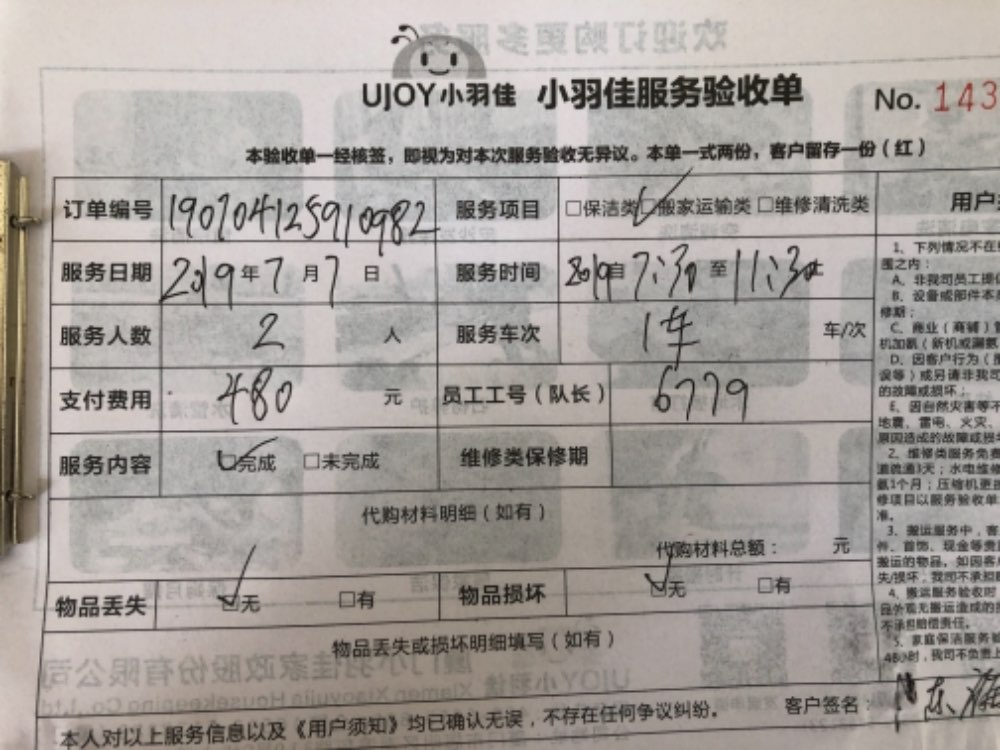 欢迎订购更多服务
UJOY小羽佳 小羽佳服务验收单 No. 143
本验收单一经核签，即视为对本次服务验收无异议。本单一式两份，客户留存一份（红）
订单编号 190704125910982 服务项目 □保洁类 ☑搬家运输类 □维修清洗类
服务日期 2019年7月7日 服务时间 2019自7:30至11:30止
服务人数 2 人 服务车次 1车 车/次
支付费用 480 元 员工工号（队长） 6779
服务内容 ☑完成 □未完成 维修类保修期
代购材料明细（如有）
代购材料总额： 元
物品丢失 ☑无 □有 物品损坏 ☑无 □有
物品丢失或损坏明细填写（如有）
本人对以上服务信息以及《用户须知》均已确认无误，不存在任何争议纠纷。 客户签名：
用户
1、下列情况不在
围之内：
A、非我司员工提
B、设备或部件本
修期；
C、商业（商铺）
机加氨（新机或漏氨
D、因客户行为（
误等）或另请非我司
的故障或损坏；
E、因自然灾害等不
地震、雷电、火灾、
原因造成的故障或损
2、维修类服务免费
道疏通3天；水电维修
氨1个月；压缩机更
修项目以服务验收单
准。
3、搬运服务中，客
件、首饰、现金等贵
搬运的物品，如因客
失/损坏，我司不承担
4、搬运服务验收时
品外观无搬运造成的
不承担赔偿责任。
5、家庭保洁服务
48小时，我司不负责上